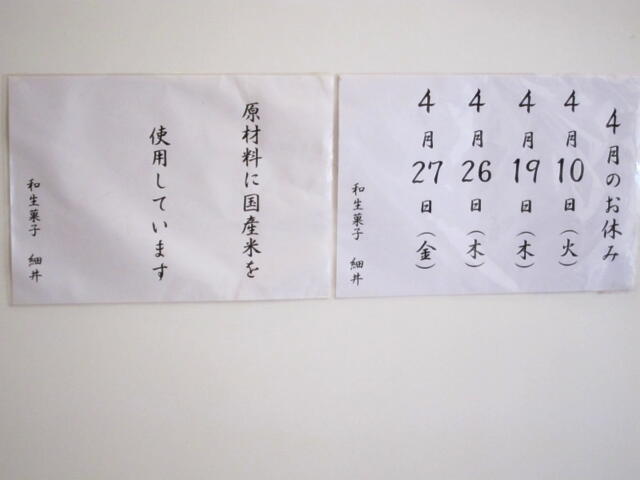 4月のお休み
4月10日(火)
4月19日(木)
4月26日(木)
4月27日(金)
和生菓子 細井
原材料に国産米を
使用しています
和生菓子 細井